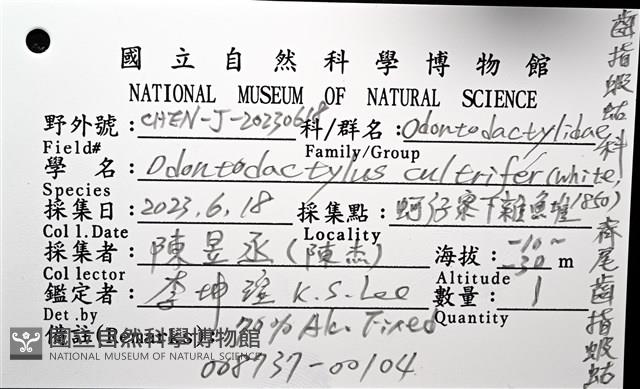 國立自然科學博物館
NATIONAL MUSEUM OF NATURAL SCIENCE
野外號：CHEN-J-20230618 科/群名：Odontodactylidae
Field# Family/Group
學名：Odontodactylus cultrifer (White, 1850)
Species
採集日：2023.6.18 採集點：蚵仔寮下雜魚堆
Coll.Date Locality
採集者：陳昱丞(陳杰) 海拔：-10~-30 m
Collector Altitude
鑑定者：李坤瑄 K.S.Lee 數量：1
Det.by Quantity
備註(Remarks)：70% Alc. Fixed
008737-00104
齒指蝦蛄科 齊尾齒指蝦蛄
國立自然科學博物館
NATIONAL MUSEUM OF NATURAL SCIENCE